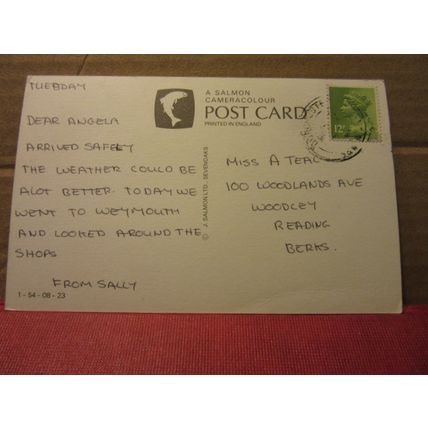 TUESDAY
DEAR ANGELA
ARRIVED SAFELY
THE WEATHER COULD BE
ALOT BETTER. TODAY WE
WENT TO WEYMOUTH
AND LOOKED AROUND THE
SHOPS
FROM SALLY
1-54-08-23
© J. SALMON LTD., SEVENOAKS
A SALMON
CAMERACOLOUR
POST CARD
PRINTED IN ENGLAND
12P
MISS A TEAL
100 WOODLANDS AVE
WOODLEY
READING
BERKS.